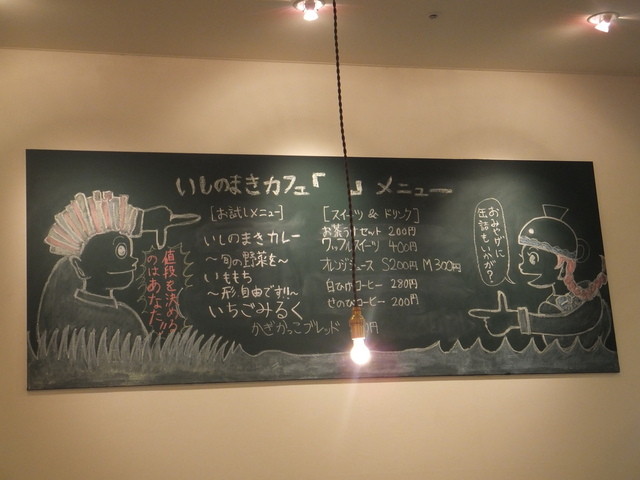 いしのまきカフェ「　」メニュー
[お試しメニュー]
いしのまきカレー
～旬の野菜を～
いももち
～形自由です!!～
いちごみるく
[スイーツ & ドリンク]
お茶うけセット 200円
ワッフルスイーツ 400円
オレンジジュース S200円 M300円
白ひげコーヒー 280円
せのびコーヒー 200円
かぎかっこブレンド 円
値段を決める
のはあなた!!
おみやげに
缶詰もいかが?